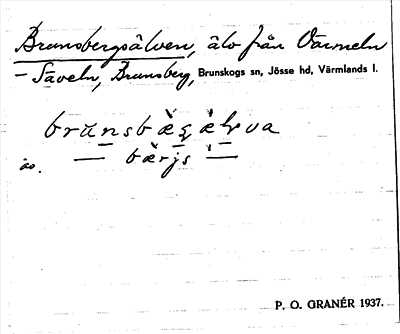 Brunsbergsälven, älv från Värmeln
– Säveln, Brunsberg, Brunskogs sn, Jösse hd, Värmlands l.
brunsbæʂælva
— bærjs —
äo.
P. O. GRANÉR 1937.